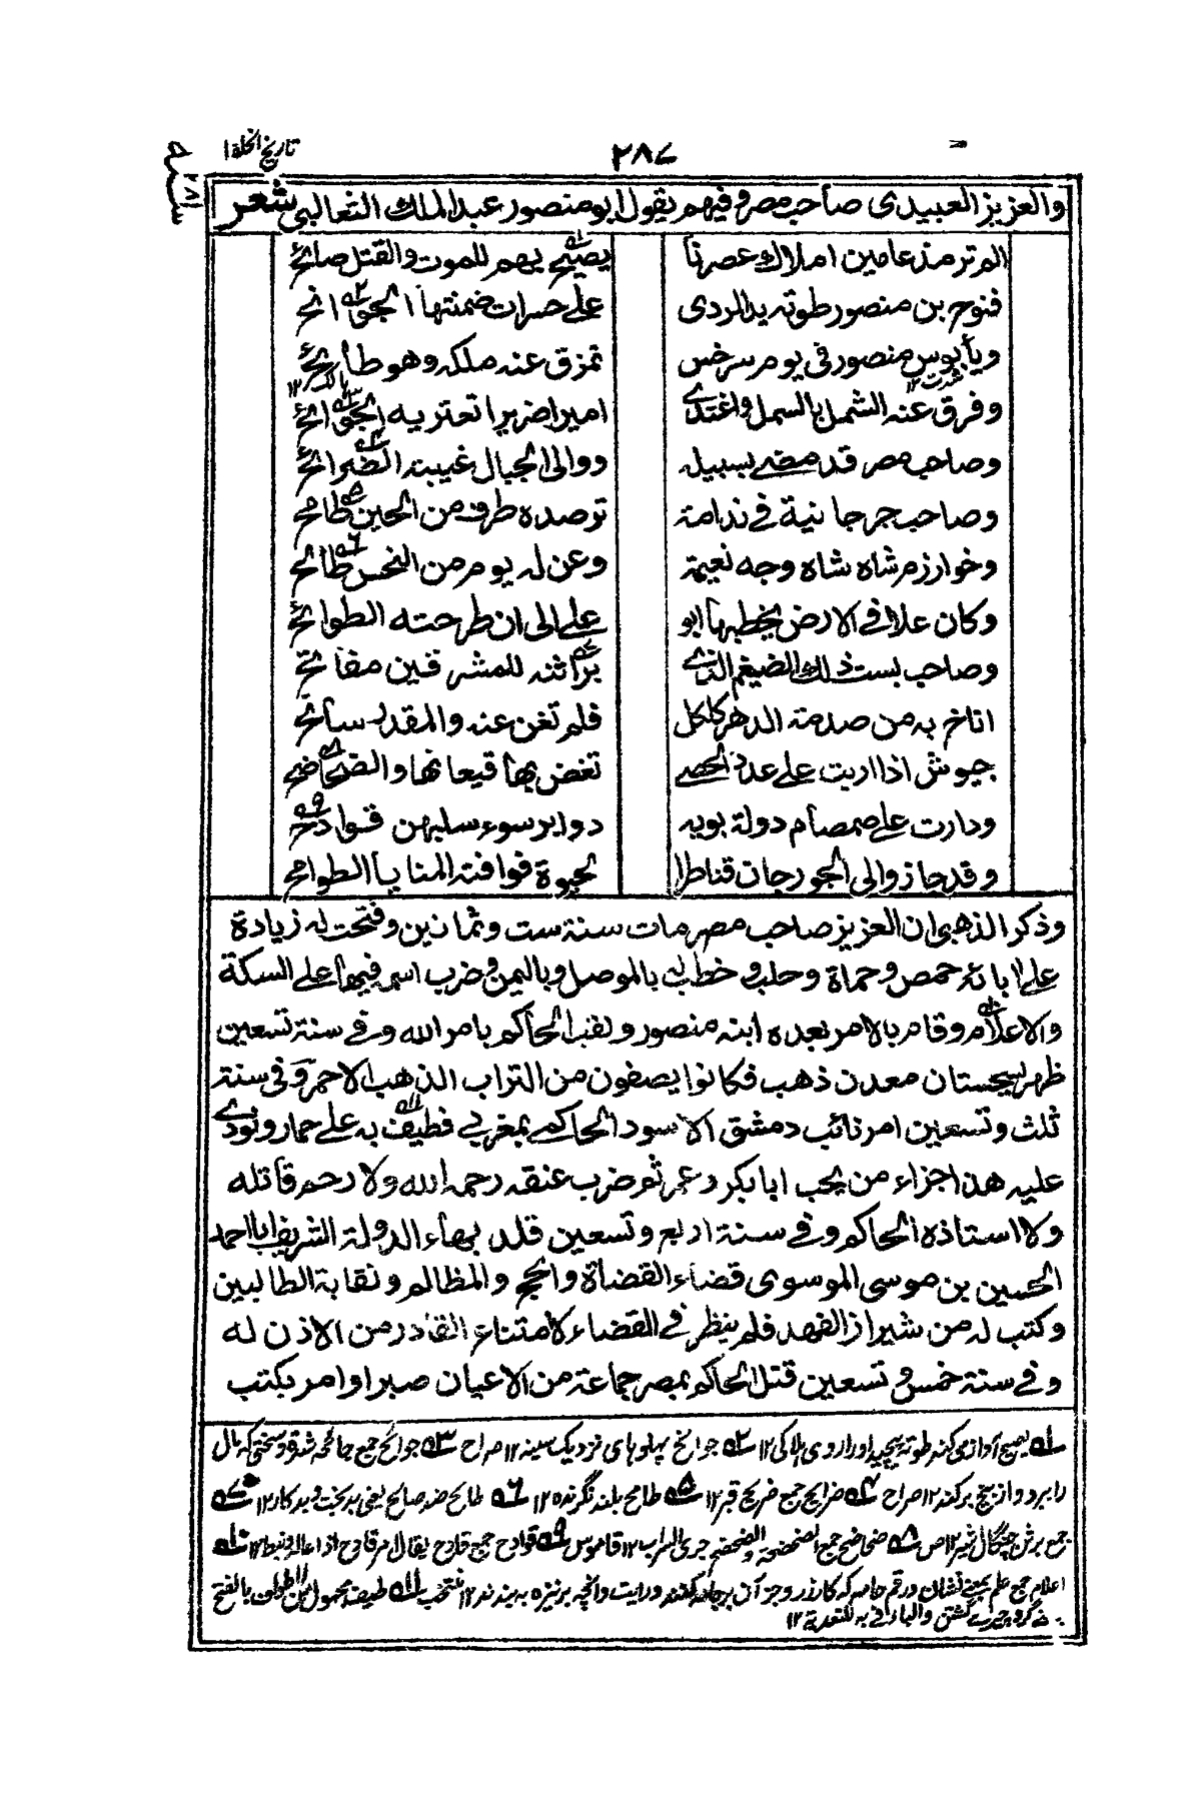 تاريخ الخلفا
٢٨٧
والعزيز العبيدى صاحب مصر وفيهم يقول ابو منصور عبد الملك الثعالبى شعر
الم تر مذ عامين املاك عصرنا يصيح بهم للموت والقتل صائح
فنوح بن منصور طوته يد الردى على حسرات ضمنتها الجوانح
ويا بوس منصور فى يوم سرخس تمزق عنه ملكه وهو طائح
وفرق عنه الشمل بالسمل واغتدى اميرا ضريرا تعتريه الجوائح
وصاحب مصر قد مضى بسبيله ووالى الجبال غيبته الضرائح
وصاحب جرجانية فى ندامة ترصده طرف من الحين طامح
وخوارزم شاه شاه وجه نعيمة وعن له يوم من النحس طالح
وكان علا فى الارض يخطبها ابو على الى ان طرحته الطوائح
وصاحب بست ذلك الضيغم الذى براثنه للمشرقين مفاتح
اناخ به من صدمة الدهر كلكل فلم تغن عنه والمقدر سانح
جيوش اذا اربت على عدد الحصى تغص بها قيعانها والضحاضح
ودارت على صمصام دولة بويه دوابر سوء سلبهن قوادح
وقد جاز والى الجوزجان قناطر الحيوة فوافته المنايا الطوامح
وذكر الذهبى ان العزيز صاحب مصر مات سنة ست وثمانين وفتحت له زيادة
على ابائه حمص وحماة وحلب وخطب له بالموصل وباليمن وضرب اسمه فيها على السكة
والاعلام وقام بالامر بعده ابنه منصور ولقب الحاكم بامر الله وفى سنة تسعين
ظهر بسجستان معدن ذهب فكانوا يصفون من التراب الذهب الاحمر وفى سنة
ثلث وتسعين امر نائب دمشق الاسود الحاكمى بمغربى فطيف به على حمار ونودى
عليه هذا جزاء من يحب ابا بكر وعمر ثم ضرب عنقه رحمه الله ولا رحم قاتله
ولا استاذه الحاكم وفى سنة اربع وتسعين قلد بهاء الدولة الشريف ابا احمد
الحسين بن موسى الموسوى قضاء القضاة والحج والمظالم ونقابة الطالبين
وكتب له من شيراز العهد فلم ينظر فى القضاء لامتناع القادر من الاذن له
وفى سنة خمس وتسعين قتل الحاكم بمصر جماعة من الاعيان صبرا وامر بكتب
له يصيح آواز مى كند طوته پيچيد او را روى هلاكى ١٢ جوانح پهلوهاى نزديك سينه ١٢ صراح جوائح جمع جائحه شدة وسختى كه مال
را ببرد واز بيخ بركند ١٢ صراح ضرايح جمع ضريح قبر ١٢ طامح بلند نگرنده ١٢ طالح ضد صالح يعنى بدبخت وبدكار ١٢
جمع برثن چنگال شير ١٢ ص ضحاضح جمع الضحضحة والضحضح جرى السراب ١٢ قاموس قوادح جمع قادح يقال
اعلام جمع علم بمعنى نشان ورقم جامه كه كازر وجز آن بر جامه كنند ورايت وانچه بر نيزه به بندند ١٢ منتخب طيف مجهول من الطوف بالفتح
گرد چيزے گشتن والباء فى به للتعدية ١٢